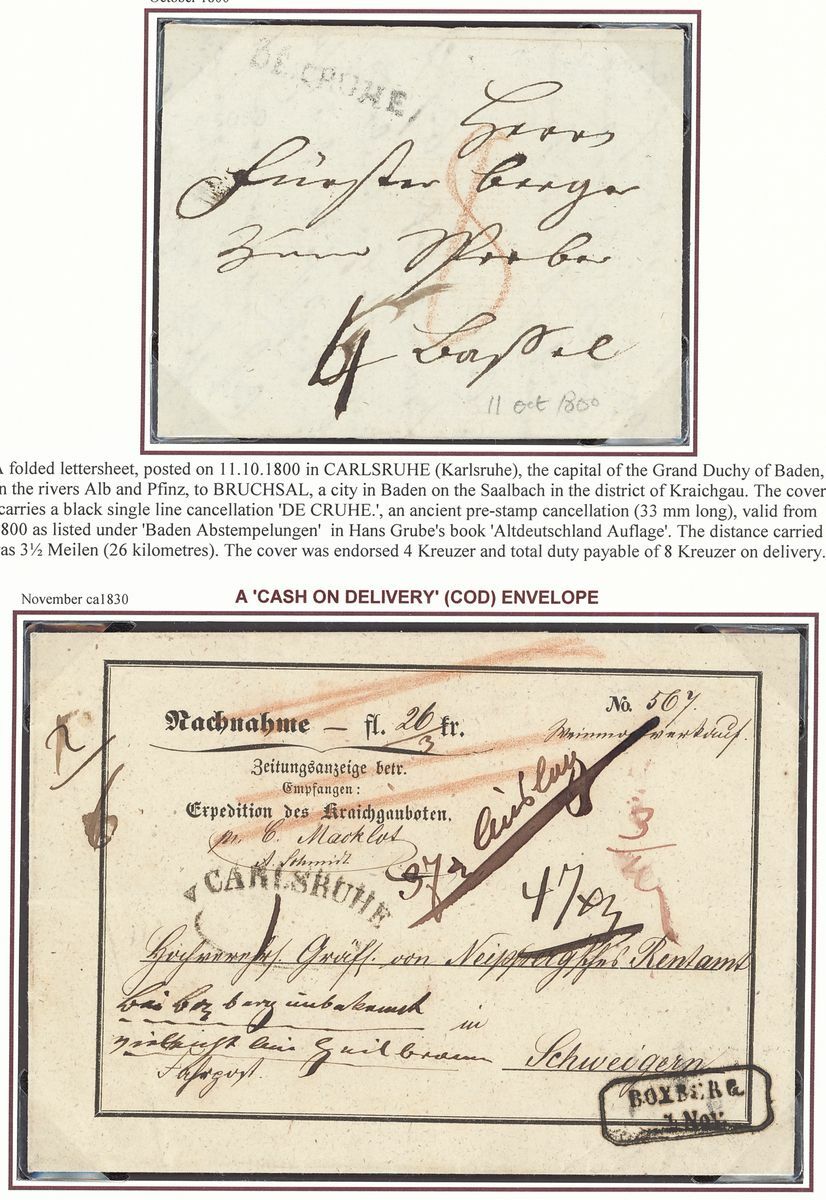 October 1800
DE CRUHE.
Herrn
Förster
8
4
Bassel
11 oct 1800
A folded lettersheet, posted on 11.10.1800 in CARLSRUHE (Karlsruhe), the capital of the Grand Duchy of Baden,
n the rivers Alb and Pfinz, to BRUCHSAL, a city in Baden on the Saalbach in the district of Kraichgau. The cover
carries a black single line cancellation 'DE CRUHE.', an ancient pre-stamp cancellation (33 mm long), valid from
800 as listed under 'Baden Abstempelungen' in Hans Grube's book 'Altdeutschland Auflage'. The distance carried
as 3½ Meilen (26 kilometres). The cover was endorsed 4 Kreuzer and total duty payable of 8 Kreuzer on delivery.
November ca1830
A 'CASH ON DELIVERY' (COD) ENVELOPE
No. 567.
Nachnahme — fl. 26 kr.
3
Zeitungsanzeige betr.
Empfangen:
Expedition des Kraichgauboten.
C. Macklot
A. Schmidt
CARLSRUHE
47
3
Hochverehrl. Gräfl. von Neipperg'sches Rentamt
bei Boxberg unbekannt
in
vielleicht bei Heilbronn
Schweigern
Fahrpost.
BOXBERG
Nov.